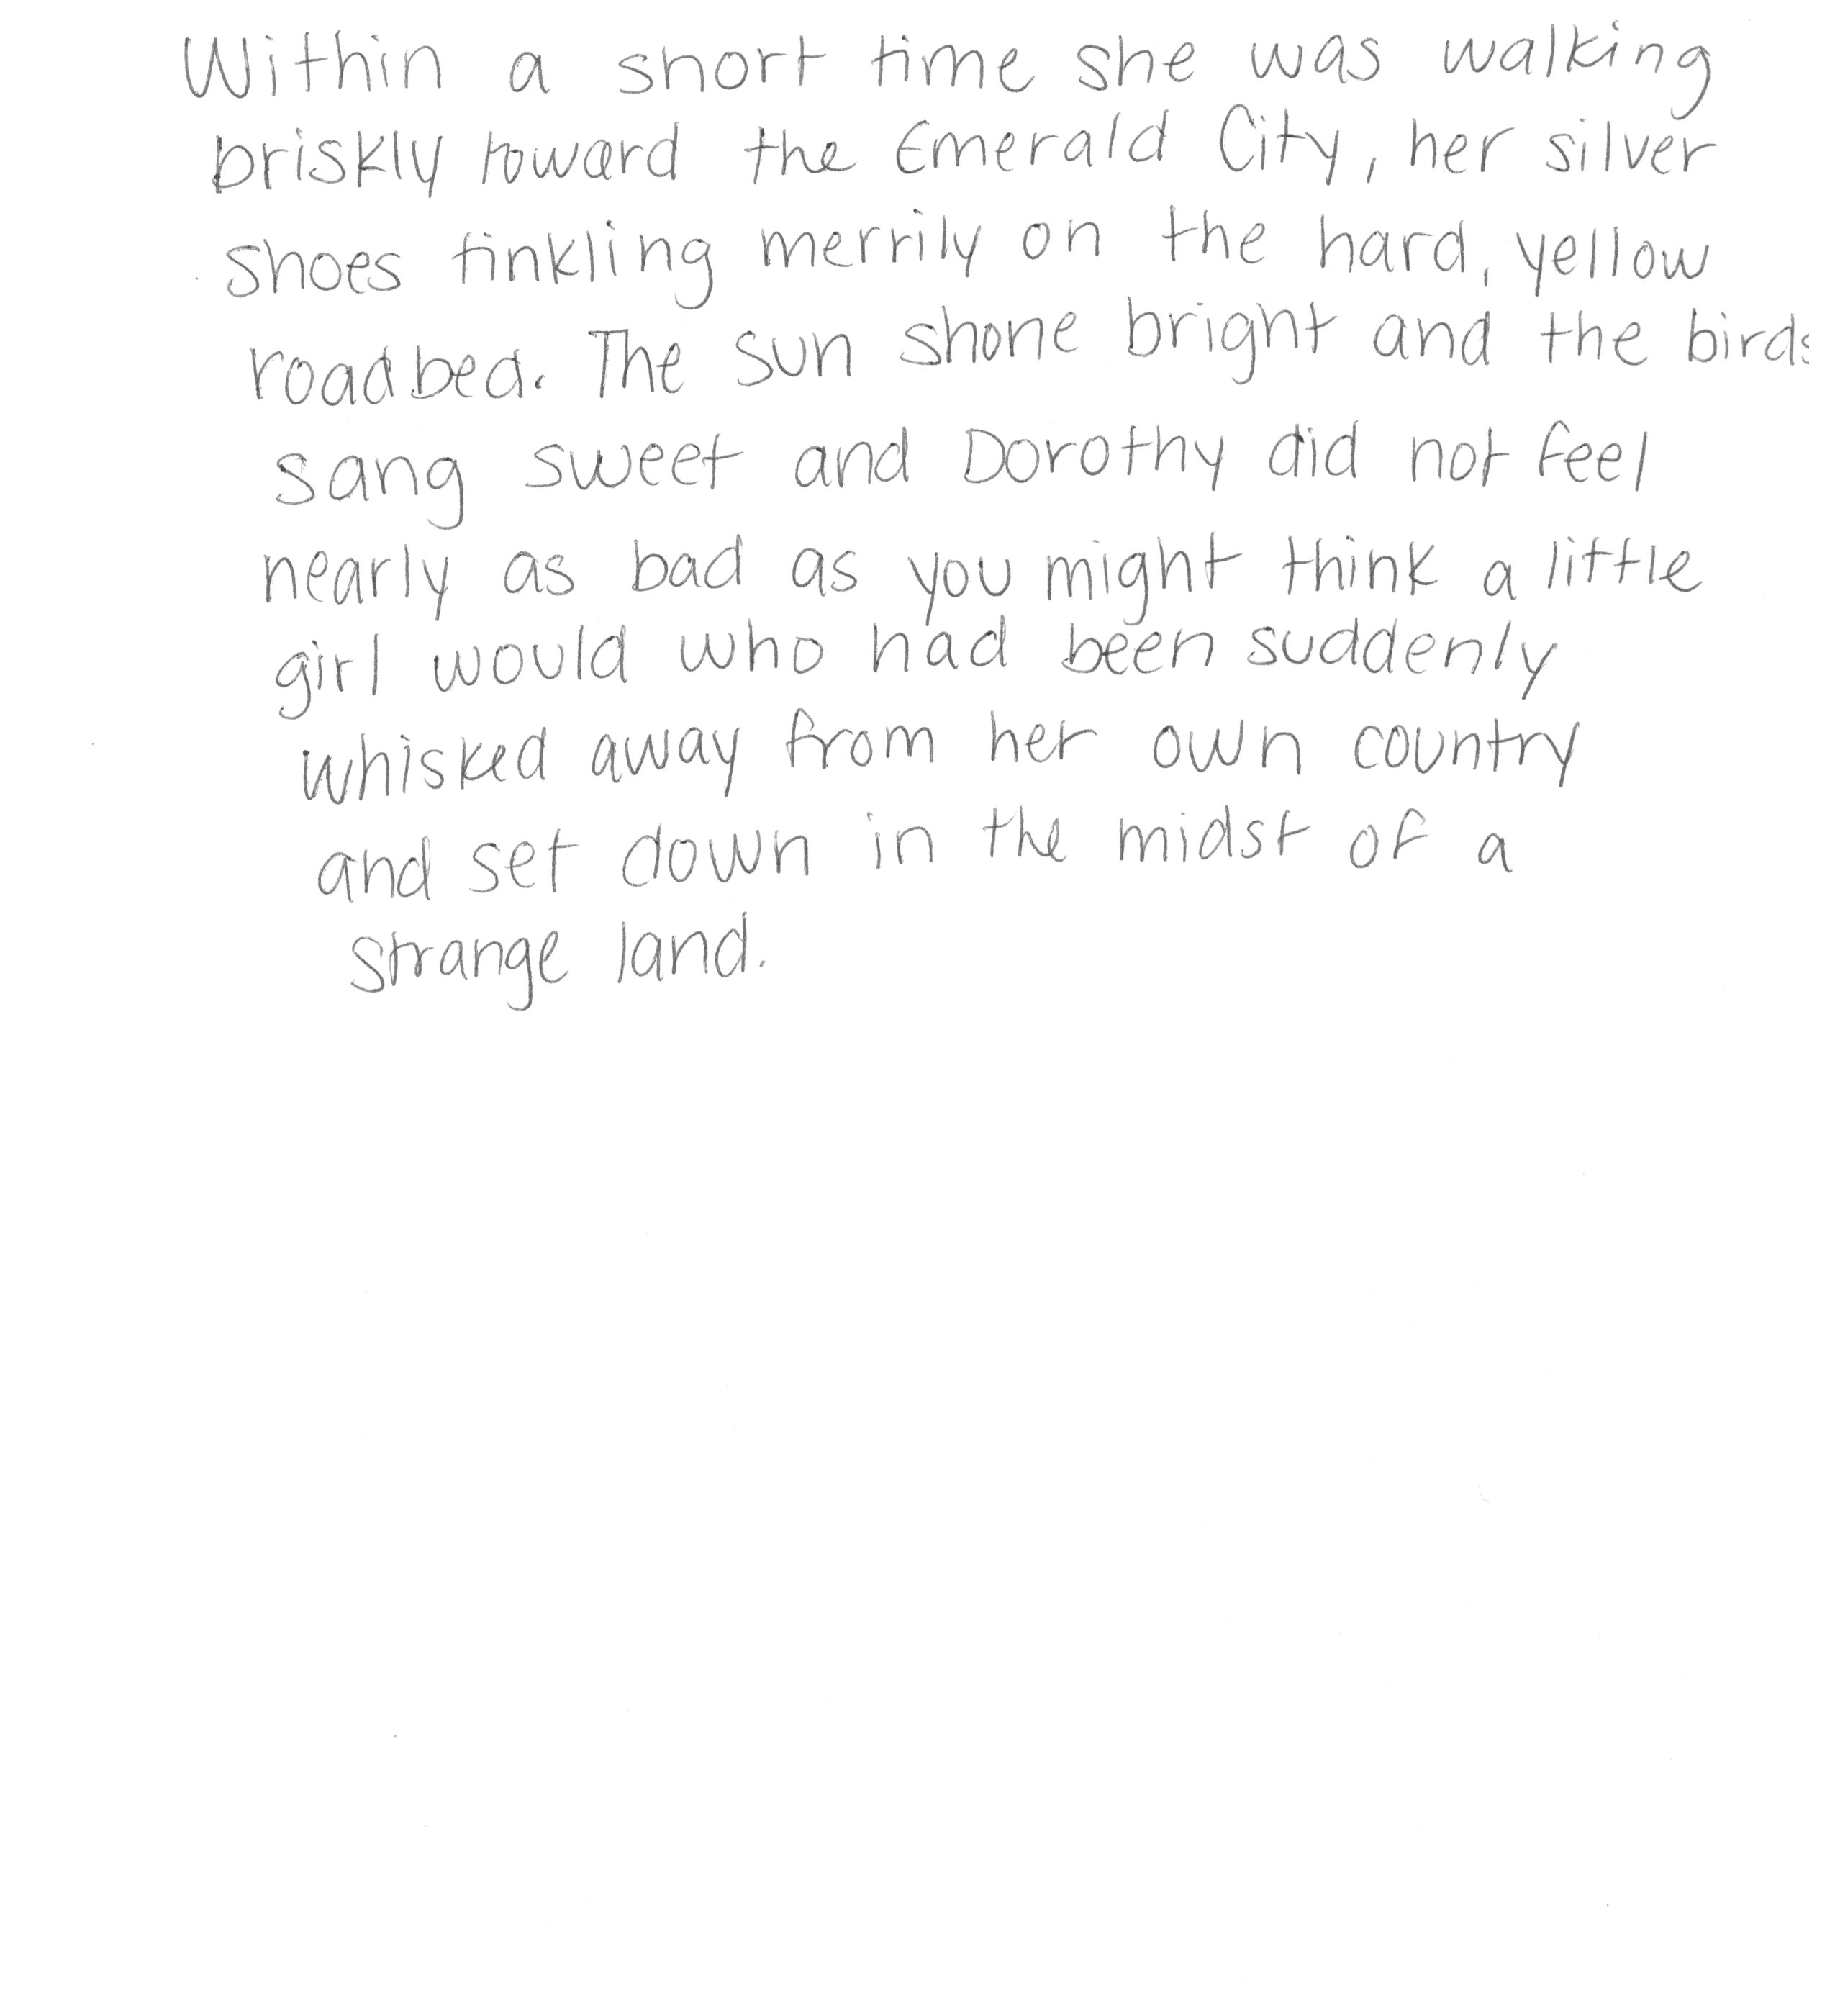 Within a short time she was walking
briskly toward the Emerald City, her silver
shoes tinkling merrily on the hard, yellow
roadbed. The sun shone bright and the birds
sang sweet and Dorothy did not feel
nearly as bad as you might think a little
girl would who had been suddenly
whisked away from her own country
and set down in the midst of a
strange land.